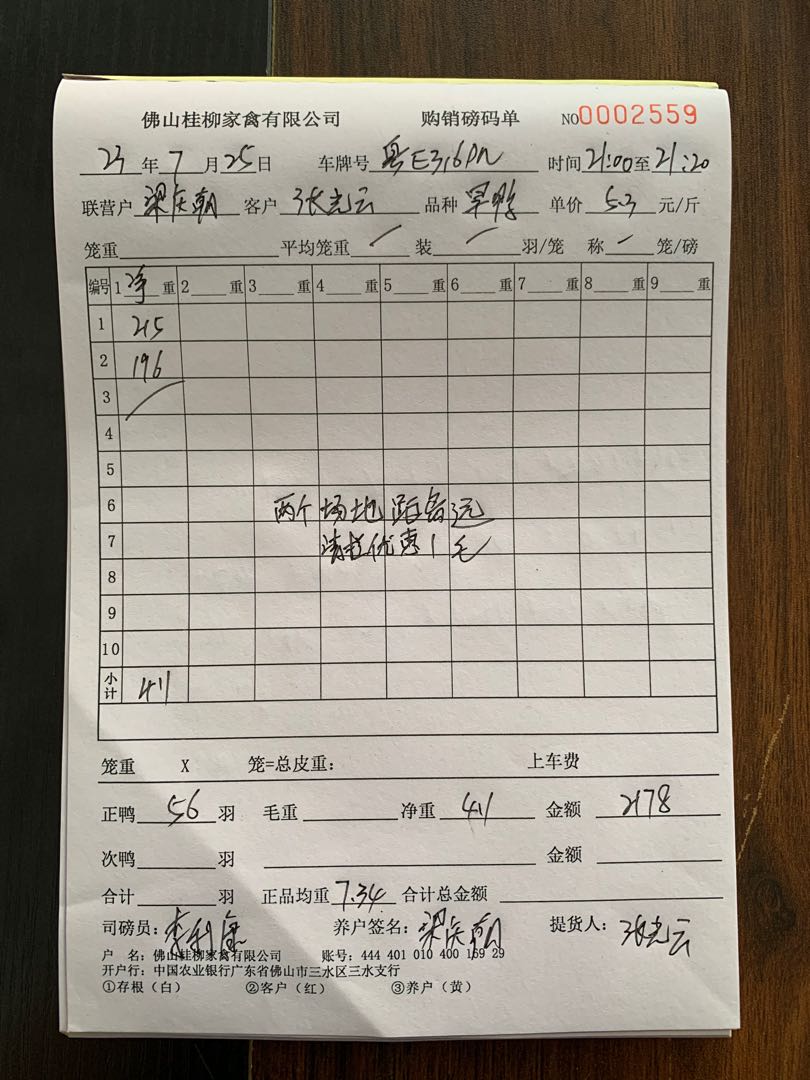 佛山桂柳家禽有限公司 购销磅码单 NO0002559
23年7月25日 车牌号 粤E316 时间21:00至21:20
联营户 梁庆朝 客户 张志云 品种 旱鸭 单价 5.3 元/斤
笼重 平均笼重 / 装 / 羽/笼 称 / 笼/磅
编号 1 净 重 2 重 3 重 4 重 5 重 6 重 7 重 8 重 9 重
1 215
2 196
3
4
5
6 两个场地距离远
7 请示优惠1毛
8
9
10
小计 411
笼重 X 笼=总皮重: 上车费
正鸭 56 羽 毛重 净重 411 金额 2178
次鸭 羽 金额
合计 羽 正品均重 7.34 合计总金额
司磅员: 李利 养户签名: 梁庆朝 提货人: 张志云
户 名: 佛山桂柳家禽有限公司 账号: 444 401 010 400 169 29
开户行: 中国农业银行广东省佛山市三水区三水支行
①存根(白) ②客户(红) ③养户(黄)